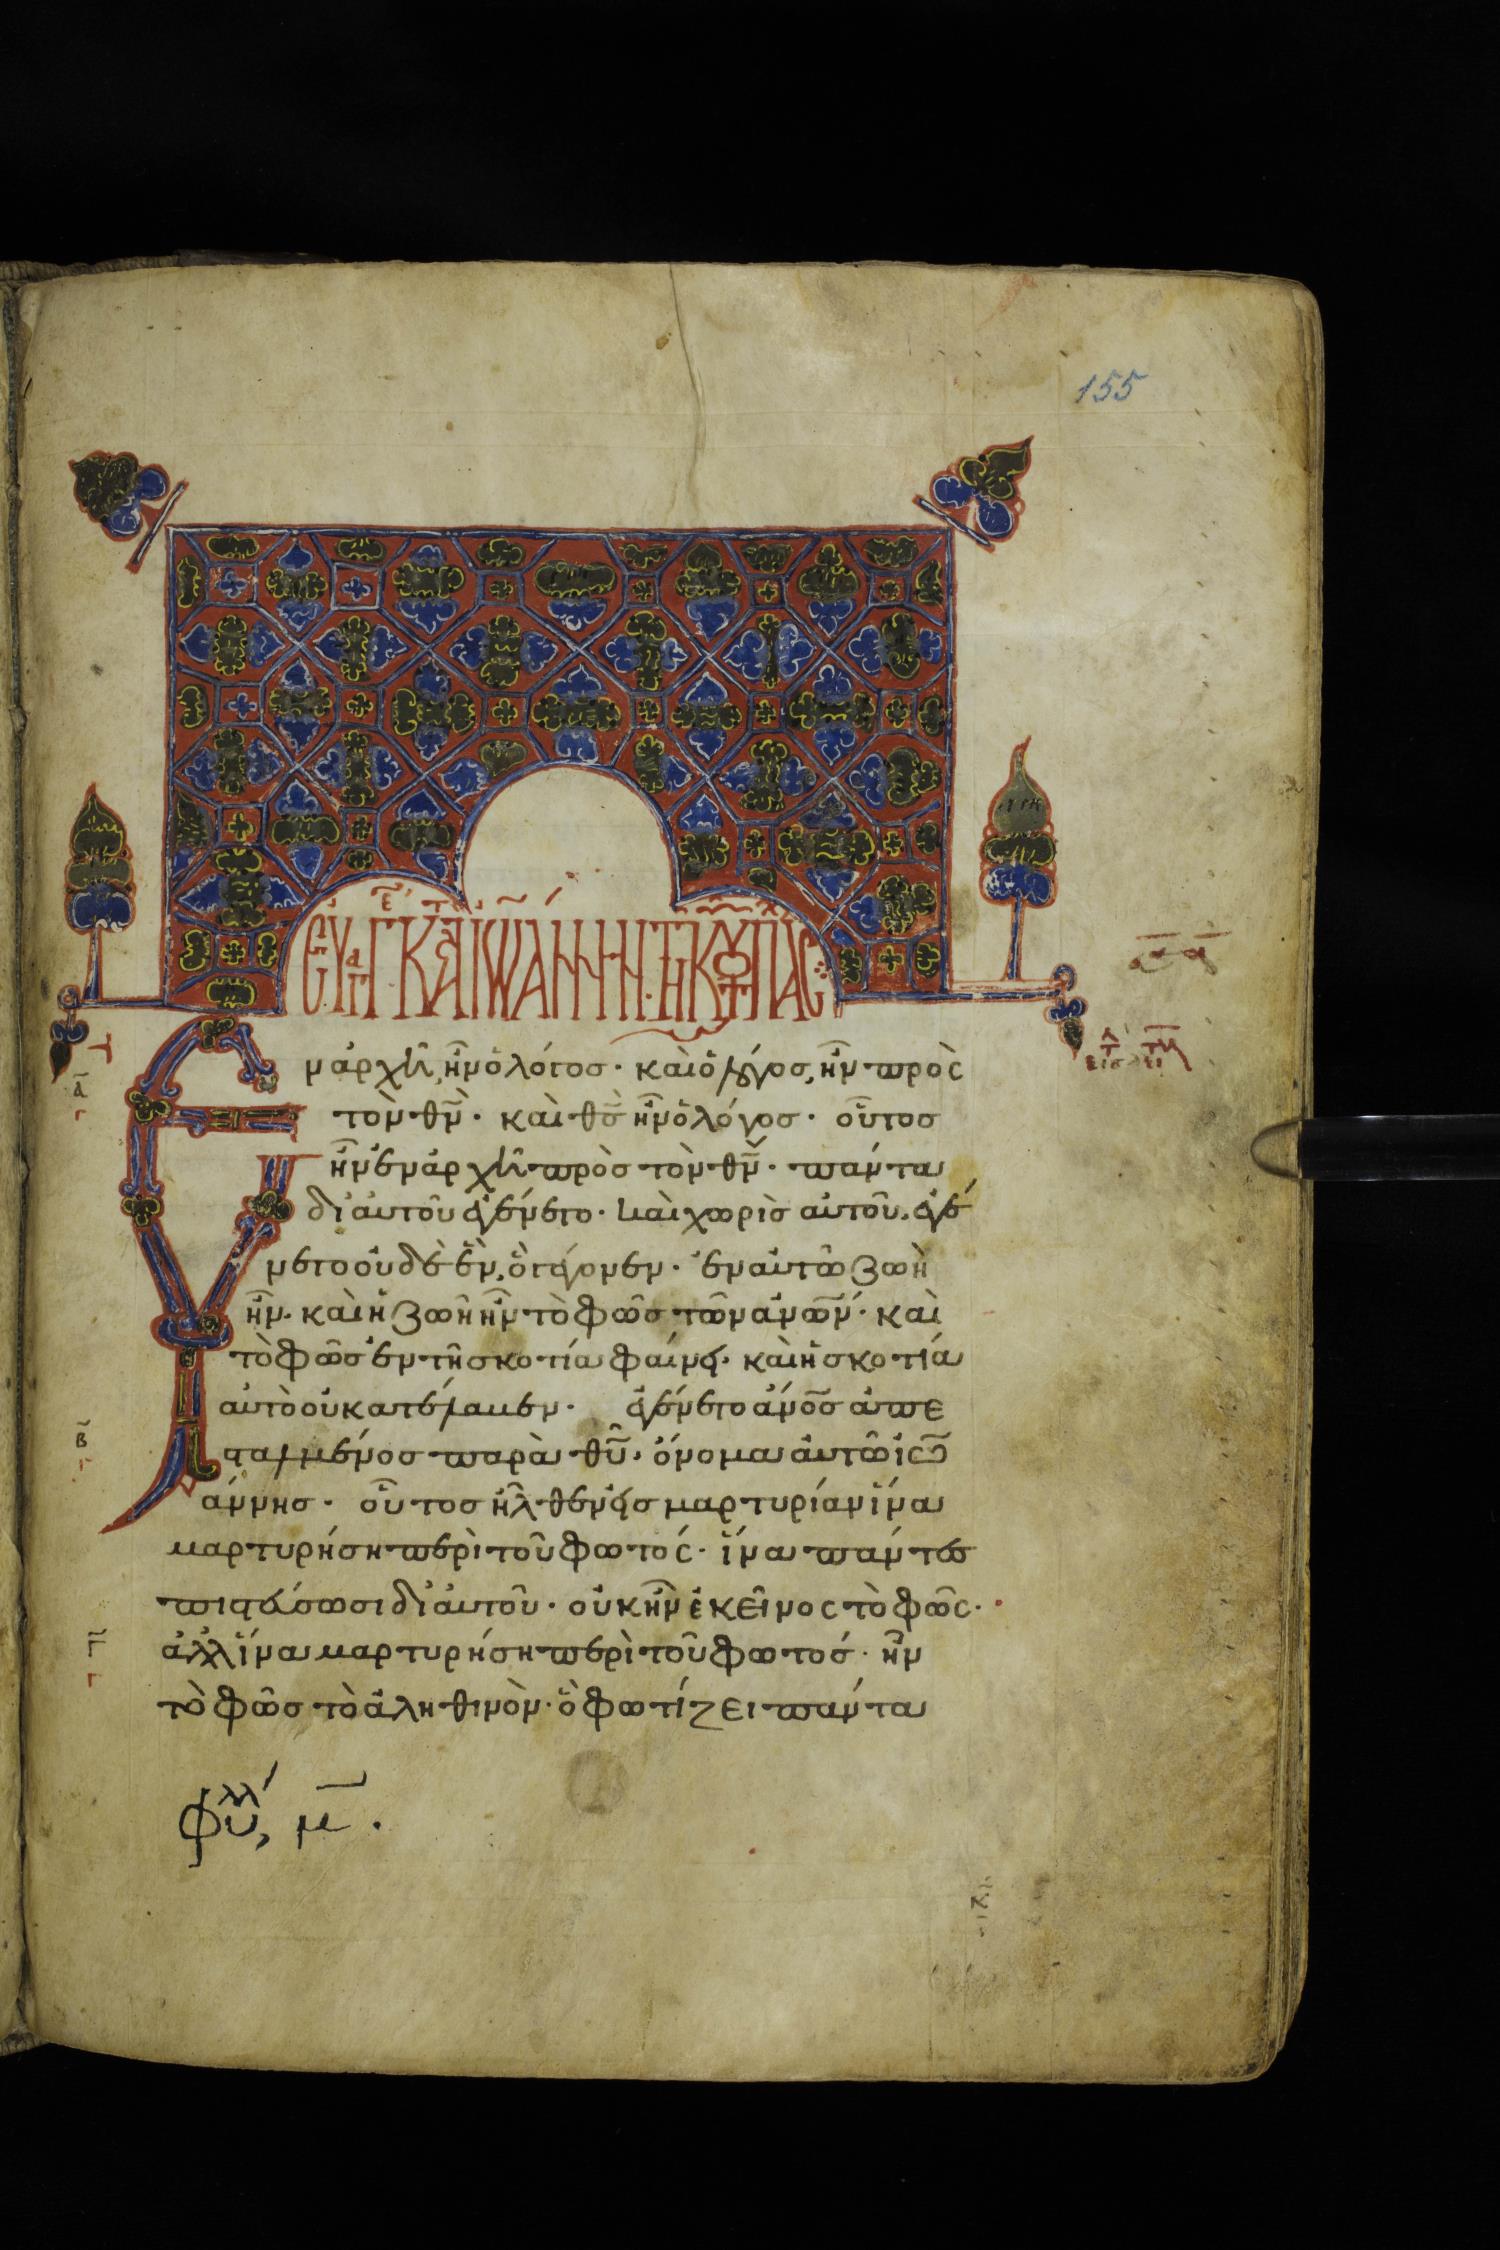 155
μ ἀρχῆ, ἦν ὁ λόγος· καὶ ὁ λόγος, ἦν πρὸς
τὸν θν̅· καὶ θς̅ ἦν ὁ λόγος· οὗτος
ἦν ἐν ἀρχῆ πρὸς τὸν θν̅· πάντα
δι' αὐτοῦ ἐγένετο· καὶ χωρὶς αὐτοῦ, ἐγέ
νετο οὐδὲ ἓν, ὃ γέγονεν· ἐν αὐτῶ ζωὴ
ἦν· καὶ ἡ ζωὴ ἦν τὸ φῶς τῶν ἀνω̅ν· καὶ
τὸ φῶς ἐν τῆ σκοτία φαίνει· καὶ ἡ σκοτία
αὐτὸ οὐ κατέλαβεν· ἐγένετο ἄνο̅ς ἀπε
σταλμένος παρὰ θυ̅· ὄνομα αὐτῶ ἰω
άννης· οὗτος ἦλθεν εἰς μαρτυρίαν ἵνα
μαρτυρήση περὶ τοῦ φωτός· ἵνα πάντες
πιστεύσωσι δι' αὐτοῦ· οὐκ ἦν ἐκεῖνος τὸ φῶς·
ἀλλ' ἵνα μαρτυρήση περὶ τοῦ φωτός· ἦν
τὸ φῶς τὸ ἀληθινὸν· ὃ φωτίζει πάντα
φύλλ, μ̅.